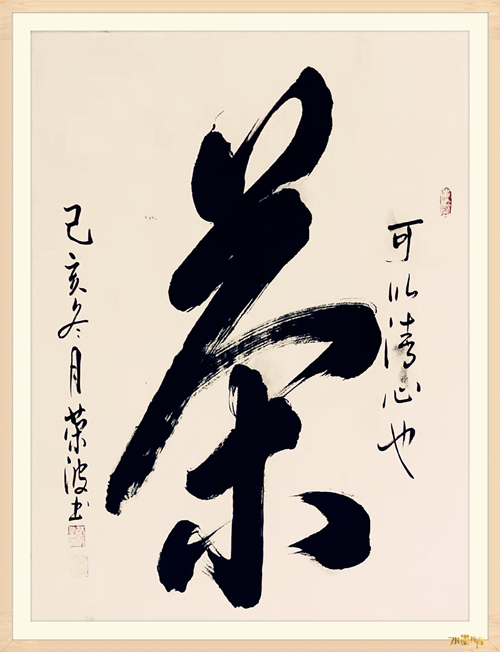 可以清心也
茶
己亥冬月荣波书